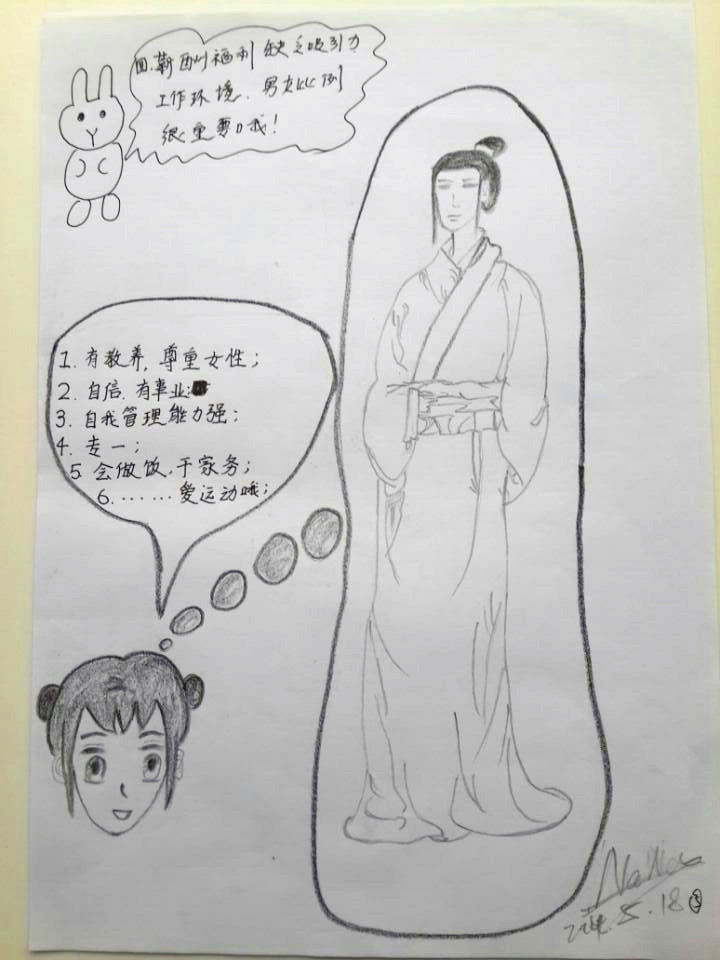 四.薪酬福利缺乏吸引力
工作环境、男女比例
很重要哦!
1. 有教养,尊重女性;
2. 自信、有事业;
3. 自我管理能力强;
4. 专一;
5. 会做饭,干家务;
6. …… 爱运动哦;
5.18